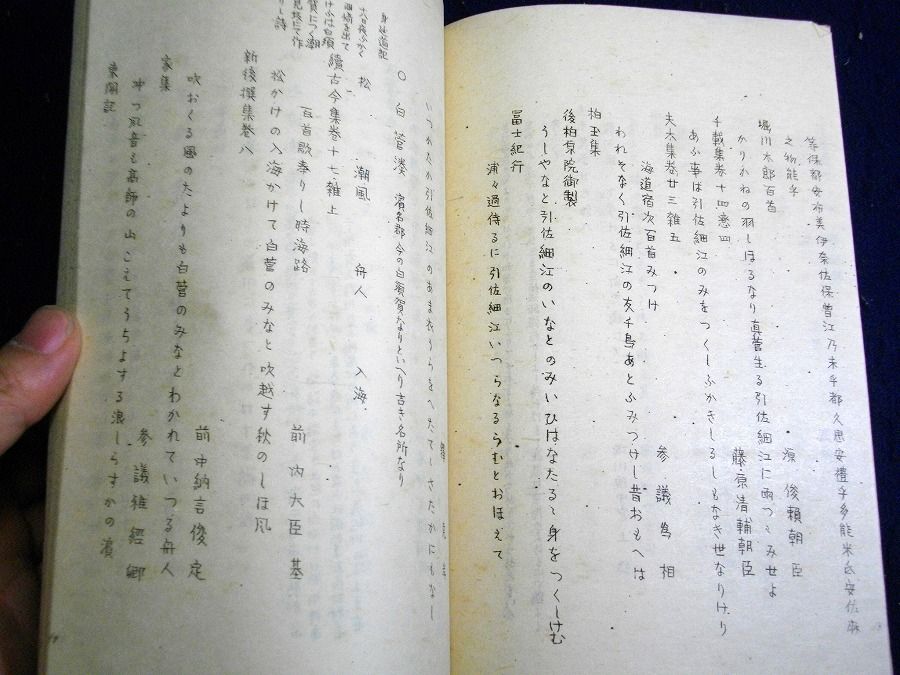 等保都安布美伊奈佐保曽江乃未乎都久思安禮乎多能米弖安佐麻
之物能乎
堀川太郎百首　源俊頼朝臣
かりかねの羽しほるなり真菅生る引佐細江に雨つゝみせよ
千載集巻十四恋四　藤原清輔朝臣
あふ事は引佐細江のみをつくしふかきしるしもなき世なりけり
夫木集巻廿三雑五　参議為相
海道宿次百首みつけ
われそなく引佐細江の友千鳥あとふみつけし昔おもへは
柏玉集
後柏原院御製
うしやなと引佐細江のいなとのみいひはなたるゝ身をつくしけむ
冨士紀行
浦々過侍るに引佐細江いつらなるらむとおほえて
いつかたか引佐細江のあま衣うらをへたてゝさたかにもなし
○白菅湊　濱名郡今の白須賀なりといへり古き名所なり
松　潮風　舟人　入海
續古今集巻十七雑上
百首歌奉りし時海路　前内大臣基
松かけの入海かけて白菅のみなと吹越す秋のしほ風
新後撰集巻八
前中納言俊定
吹おくる風のたよりも白菅のみなとわかれていつる舟人
家集　参議雅経卿
沖つ風音も高師の山こえてうちよする浪しらすかの濱
東關記